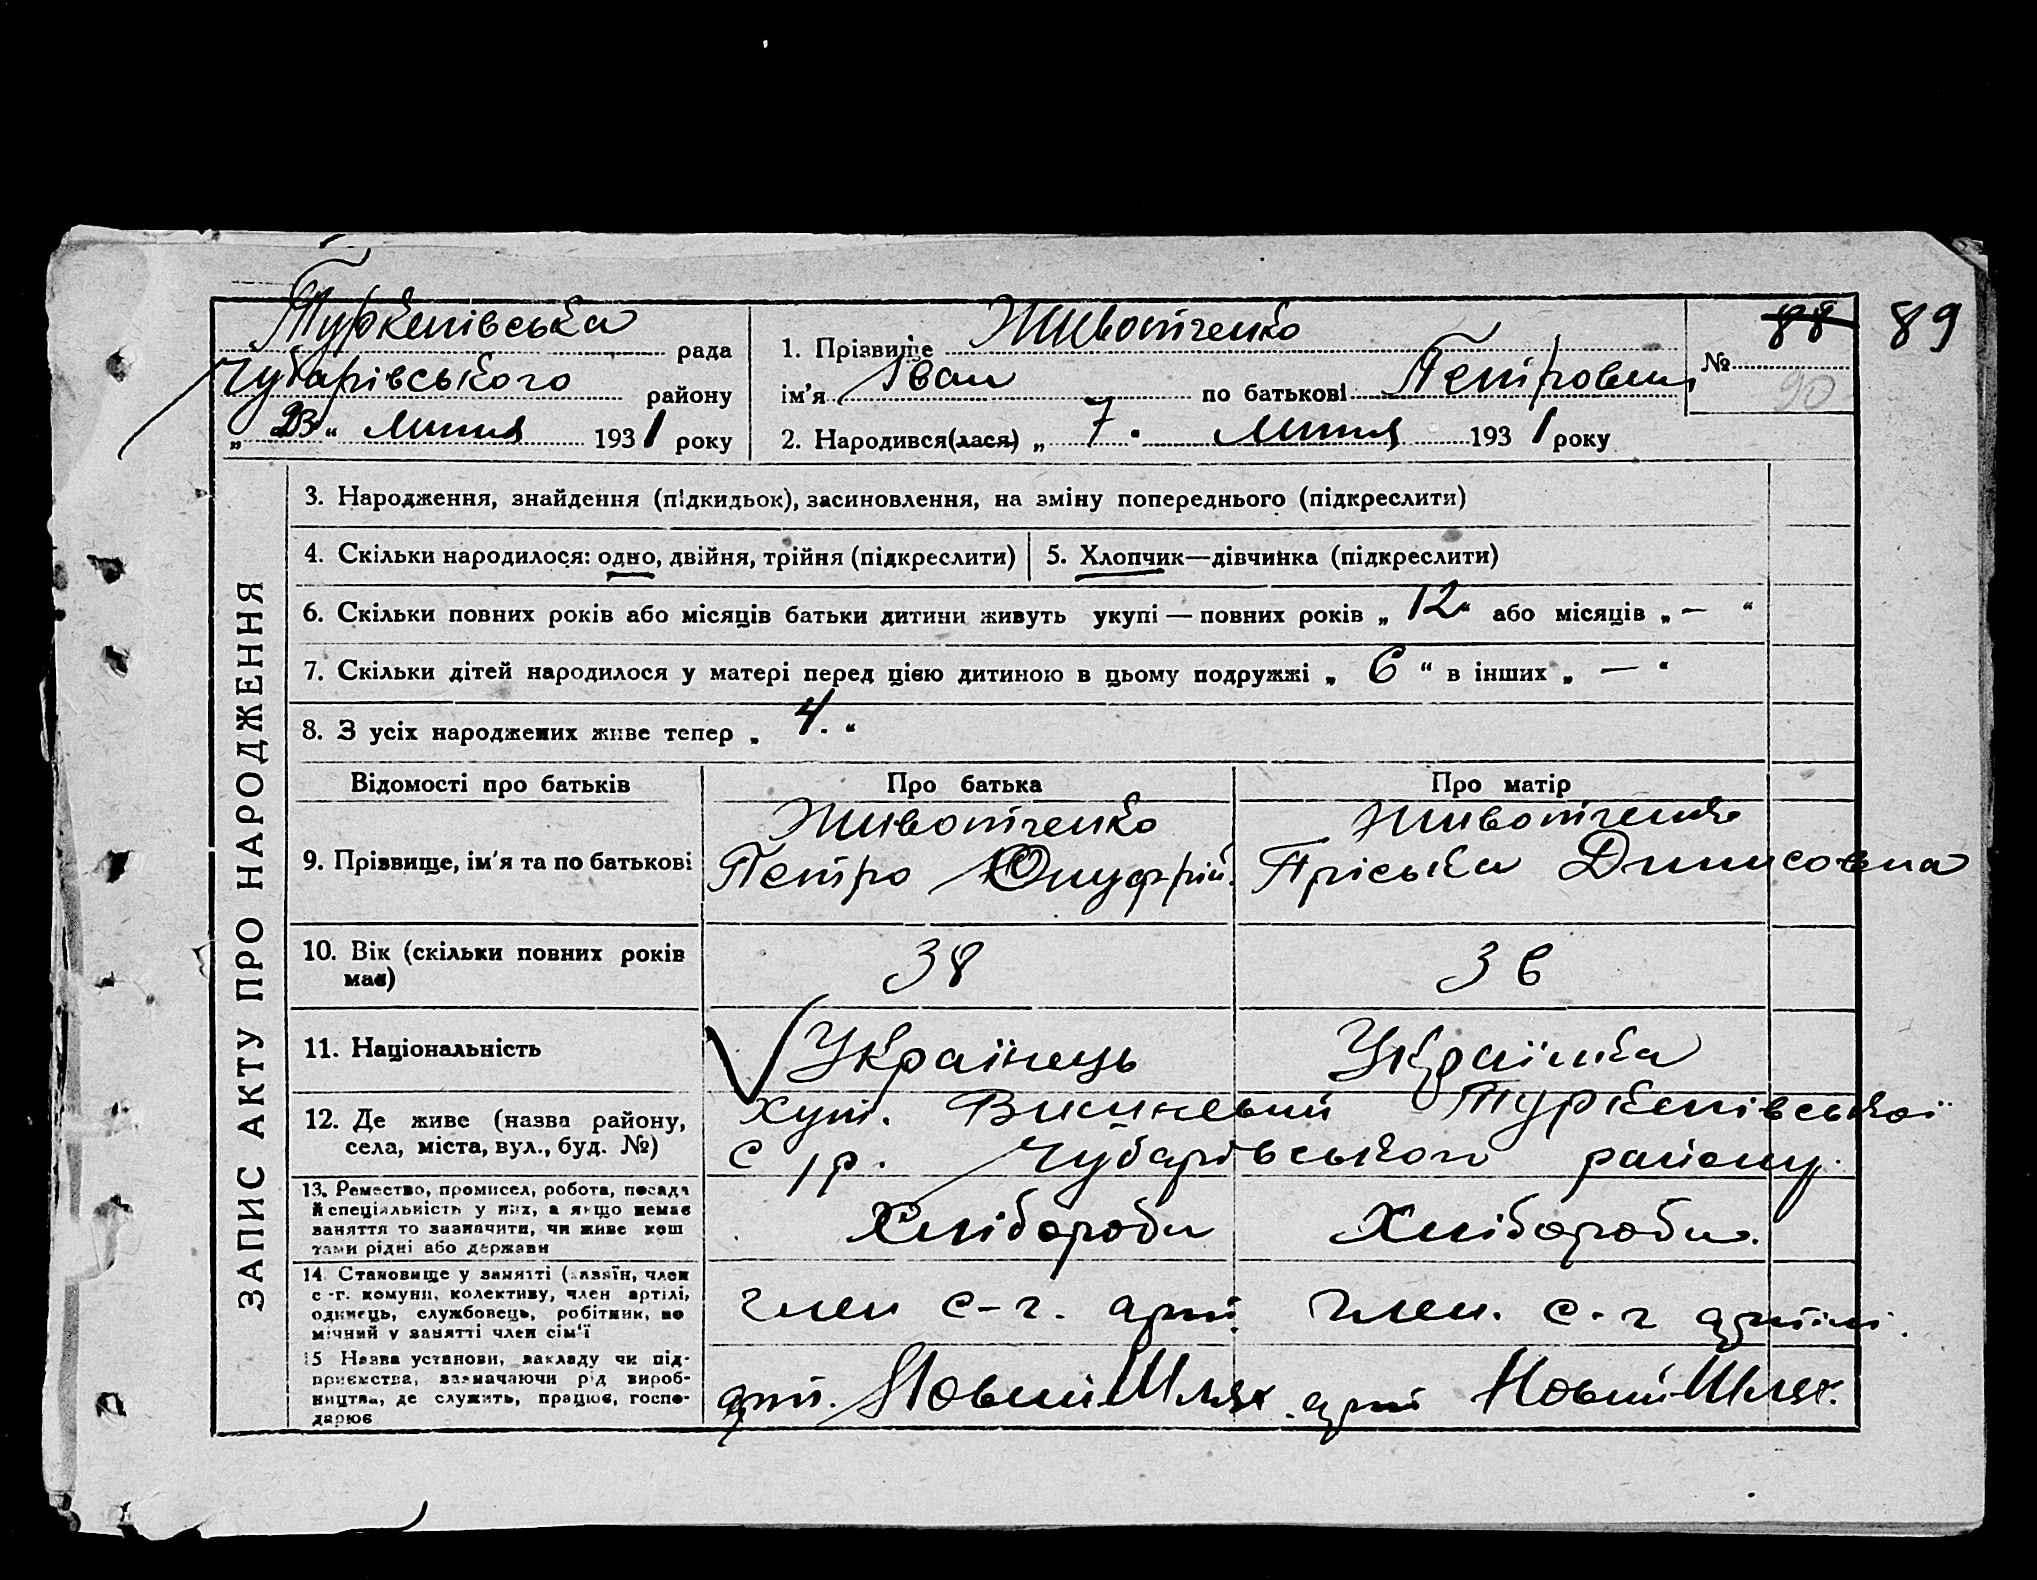 Туркенівська рада
Чубарівського району
„23“ липня 1931 року
1. Прізвище Животченко
ім'я Іван по батькові Петрович
2. Народився(лася) „ 7. липня 1931 року
№ 88 89
90
ЗАПИС АКТУ ПРО НАРОДЖЕННЯ
3. Народження, знайдення (підкидьок), засиновлення, на зміну попереднього (підкреслити)
4. Скільки народилося: одно, двійня, трійня (підкреслити)
5. Хлопчик—дівчинка (підкреслити)
6. Скільки повних років або місяців батьки дитини живуть укупі — повних років „ 12 “ або місяців „ — “
7. Скільки дітей народилося у матері перед цією дитиною в цьому подружжі „ 6 “ в інших „ — “
8. З усіх народжених живе тепер „ 4. “
Відомості про батьків Про батька Про матір
9. Прізвище, ім'я та по батькові
Животченко
Петро Онуфрій.
Животченко
Пріська Динисовна
10. Вік (скільки повних років
має)
38
36
11. Національність
Українець
Українка
12. Де живе (назва району,
села, міста, вул., буд. №)
хут. Туркенівської
с/р. Чубарівського району.
13. Ремество, промисел, робота, посада
й спеціяльність у них, а якщо немає
заняття то зазначити, чи живе кош
тами рідні або держави
Хлібороби
Хлібороби.
14 Становище у занятті (хазяїн, член
с-г. комуни, колективу, член артілі,
одинець, службовець, робітник, по
мічний у занятті член сім'ї
член с-г. арт.
член. с-г артілі.
15 Назва установи, закладу чи під-
приємства, зазначаючи рід вироб-
ництва, де служить, працює, госпо-
дарює
арт. Новий Шлях
арт Новий Шлях.